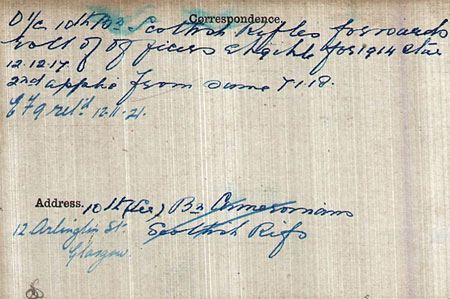 Correspondence.
O i/c 10th Bn Scottish Rifles forwards
roll of officers eligible for 1914 Star
12.12.17.
2nd applic from same 7.1.18.
EF9 ret'd 12.11.21.
Address. 10th (Ser) Bn Cameronians
12 Arlington St. Scottish Rifs
Glasgow.